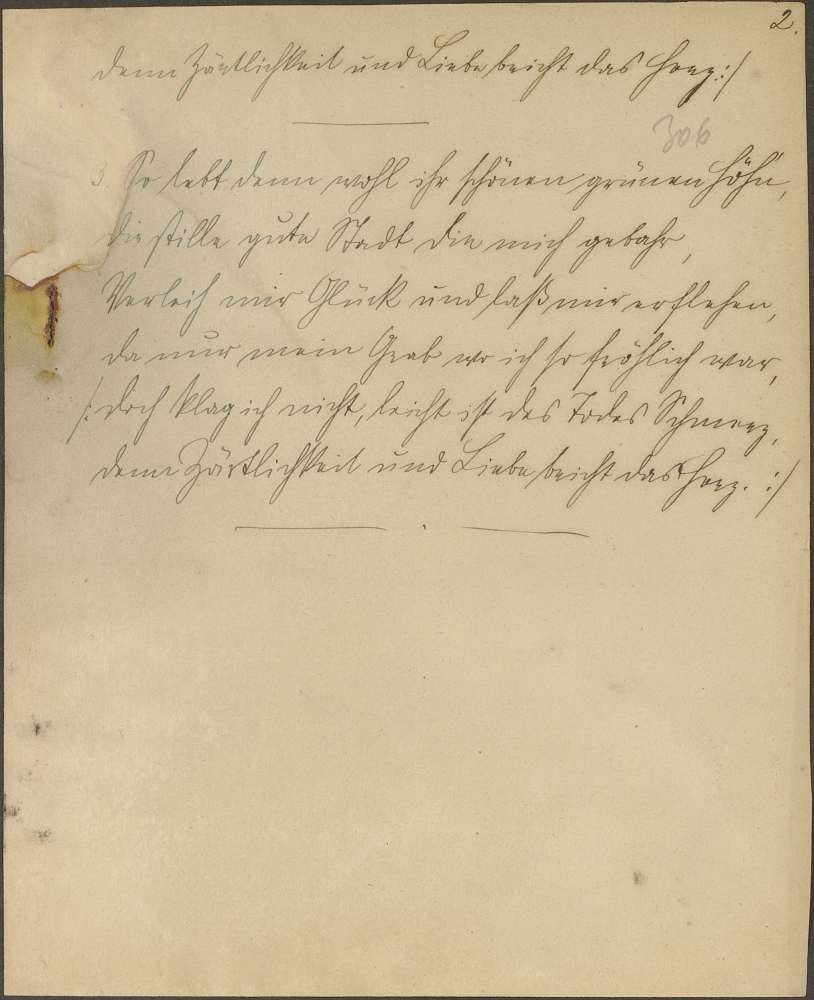 2.
denn Zärtlichkeit und Liebe bricht das Herz :/
306
3. So lebt denn wohl ihr schönen grünen Höhn,
die stille gute Stadt die mich gebahr,
Verleih mir Glück und laß mir erflehen,
da nur mein Grab wo ich so fröhlich war,
/: doch klag ich nicht, leicht ist des Todes Schmerz,
denn Zärtlichkeit und Liebe bricht das Herz. :/